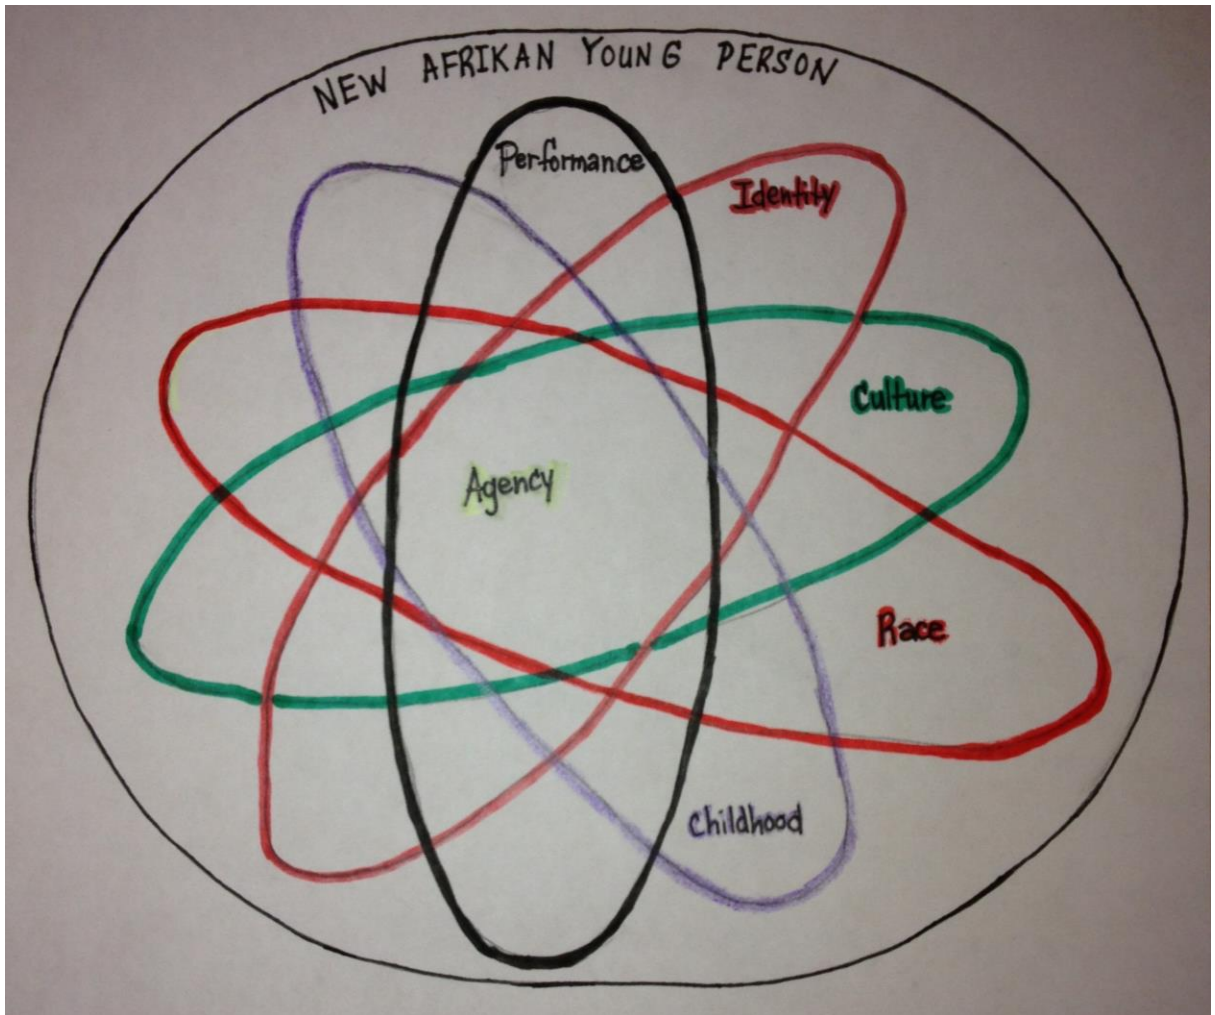 NEW AFRIKAN YOUNG PERSON
Performance
Identity
Culture
Agency
Race
Childhood